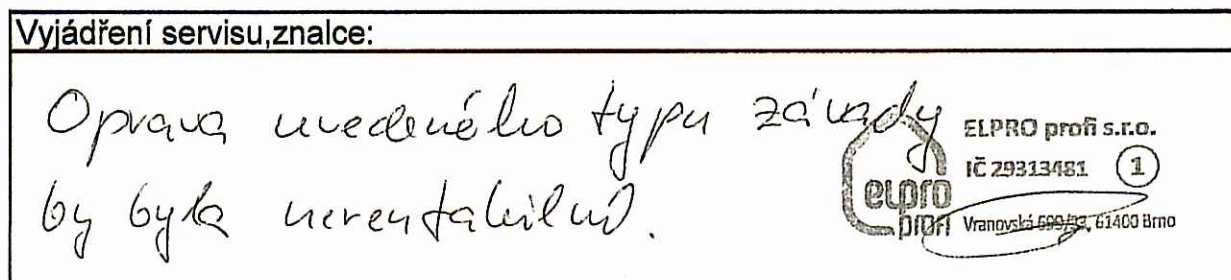 Vyjádření servisu,znalce:
Oprava uvedeného typu závady
by byla nerentabilní.
ELPRO profi s.r.o.
IČ 29313481 1
elpro
profi
Vranovská 699/33, 61400 Brno